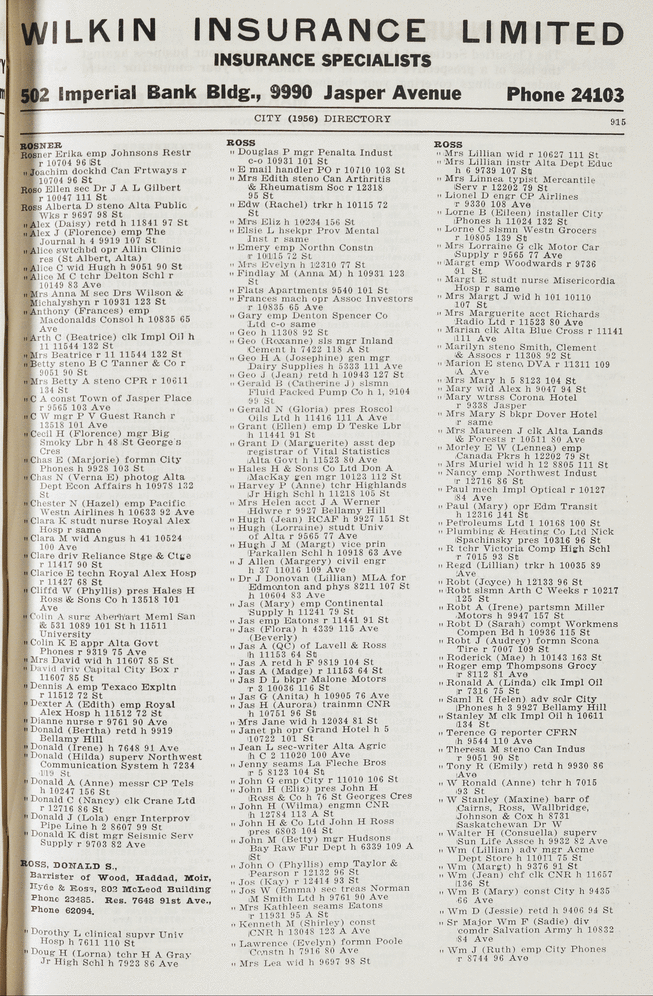 WILKIN INSURANCE LIMITED
INSURANCE SPECIALISTS
502 Imperial Bank Bldg., 9990 Jasper Avenue Phone 24103
CITY (1956) DIRECTORY 915
ROSNER
Rosner Erika emp Johnsons Restr
r 10704 96 St
" Joachim dockhd Can Frtways r
10704 96 St
Roso Ellen sec Dr J A L Gilbert
r 10047 111 St
Ross Alberta D steno Alta Public
Wks r 9697 98 St
" Alex (Daisy) retd h 11841 97 St
" Alex J (Florence) emp The
Journal h 4 9919 107 St
" Alice swtchbd opr Allin Clinic
res (St Albert, Alta)
" Alice C wid Hugh h 9051 90 St
" Alice M C tchr Delton Schl r
10149 83 Ave
" Mrs Anna M sec Drs Wilson &
Michalyshyn r 10931 123 St
" Anthony (Frances) emp
Macdonalds Consol h 10835 65
Ave
" Arth C (Beatrice) clk Impl Oil h
11 11544 132 St
" Mrs Beatrice r 11 11544 132 St
" Betty steno B C Tanner & Co r
9051 90 St
" Mrs Betty A steno CPR r 10611
134 St
" C A const Town of Jasper Place
r 9565 103 Ave
" C W mgr P V Guest Ranch r
13518 101 Ave
" Cecil H (Florence) mgr Big
Smoky Lbr h 48 St George's
Cres
" Chas E (Marjorie) formn City
Phones h 9928 103 St
" Chas N (Verna E) photog Alta
Dept Econ Affairs h 10978 132
St
" Chester N (Hazel) emp Pacific
Westn Airlines h 10633 92 Ave
" Clara K studt nurse Royal Alex
Hosp r same
" Clara M wid Angus h 41 10524
100 Ave
" Clare driv Reliance Stge & Ctge
r 11417 90 St
" Clarice E techn Royal Alex Hosp
r 11427 68 St
" Cliffd W (Phyllis) pres Hales H
Ross & Sons Co h 13518 101
Ave
" Colin A surg Aberhart Meml San
& 531 1089 101 St h 11511
University
" Colin K E appr Alta Govt
Phones r 9319 75 Ave
" Mrs David wid h 11607 85 St
" David driv Capital City Box r
11607 85 St
" Dennis A emp Texaco Expltn
r 11512 72 St
" Dexter A (Edith) emp Royal
Alex Hosp h 11512 72 St
" Dianne nurse r 9761 90 Ave
" Donald (Bertha) retd h 9919
Bellamy Hill
" Donald (Irene) h 7648 91 Ave
" Donald (Hilda) superv Northwest
Communication System h 7234
119 St
" Donald A (Anne) messr CP Tels
h 10247 156 St
" Donald C (Nancy) clk Crane Ltd
r 12716 86 St
" Donald J (Lola) engr Interprov
Pipe Line h 2 8607 99 St
" Donald K dist mgr Seismic Serv
Supply r 9703 82 Ave
ROSS, DONALD S.,
Barrister of Wood, Haddad, Moir,
Hyde & Ross, 802 McLeod Building
Phone 23485. Res. 7648 91st Ave.,
Phone 62094.
" Dorothy L clinical supvr Univ
Hosp h 7611 110 St
" Doug H (Lorna) tchr H A Gray
Jr High Schl h 7923 86 Ave
ROSS
" Douglas P mgr Penalta Indust
c-o 10931 101 St
" E mail handler PO r 10710 103 St
" Mrs Edith steno Can Arthritis
& Rheumatism Soc r 12318
95 St
" Edw (Rachel) trkr h 10115 72
St
" Mrs Eliz h 10234 156 St
" Elsie L hsekpr Prov Mental
Inst r same
" Emery emp Northn Constn
r 10115 72 St
" Mrs Evelyn h 12310 77 St
" Findlay M (Anna M) h 10931 123
St
" Flats Apartments 9540 101 St
" Frances mach opr Assoc Investors
r 10835 65 Ave
" Gary emp Denton Spencer Co
Ltd c-o same
" Geo h 11308 92 St
" Geo (Roxanne) sls mgr Inland
Cement h 7422 118 A St
" Geo H A (Josephine) gen mgr
Dairy Supplies h 5333 111 Ave
" Geo J (Jean) retd h 10943 127 St
" Gerald B (Catherine J) slsmn
Fluid Packed Pump Co h 1, 9104
99 St
" Gerald N (Gloria) pres Roscol
Oils Ltd h 11416 111 A Ave
" Grant (Ellen) emp D Teske Lbr
h 11441 91 St
" Grant D (Marguerite) asst dep
registrar of Vital Statistics
Alta Govt h 11523 80 Ave
" Hales H & Sons Co Ltd Don A
MacKay gen mgr 10123 112 St
" Harvey P (Anne) tchr Highlands
Jr High Schl h 11218 105 St
" Mrs Helen acct J A Werner
Hdwre r 9927 Bellamy Hill
" Hugh (Jean) RCAF h 9927 151 St
" Hugh (Lorraine) studt Univ
of Alta r 9565 77 Ave
" Hugh J M (Margt) vice prin
Parkallen Schl h 10918 63 Ave
" J Allen (Margery) civil engr
h 37 11016 109 Ave
" Dr J Donovan (Lillian) MLA for
Edmonton and phys 8211 107 St
h 10604 83 Ave
" Jas (Mary) emp Continental
Supply h 11241 79 St
" Jas emp Eatons r 11441 91 St
" Jas (Flora) h 4339 115 Ave
(Beverly)
" Jas A (QC) of Lavell & Ross
h 11153 64 St
" Jas A retd h F 9819 104 St
" Jas A (Madge) r 11153 64 St
" Jas D L bkpr Malone Motors
r 3 10036 116 St
" Jas G (Anita) h 10905 76 Ave
" Jas H (Aurora) trainmn CNR
h 10751 96 St
" Mrs Jane wid h 12034 81 St
" Janet ph opr Grand Hotel h 5
10722 101 St
" Jean L sec-writer Alta Agric
h C 2 11020 100 Ave
" Jenny seams La Fleche Bros
r 5 8123 104 St
" John G emp City r 11010 106 St
" John H (Eliz) pres John H
Ross & Co h 76 St Georges Cres
" John H (Wilma) engmn CNR
h 12784 113 A St
" John H & Co Ltd John H Ross
pres 6803 104 St
" John M (Betty) mgr Hudsons
Bay Raw Fur Dept h 6339 109 A
St
" John O (Phyllis) emp Taylor &
Pearson r 12132 96 St
" Jos (Kay) r 12414 93 St
" Jos W (Emma) sec treas Norman
M Smith Ltd h 9761 90 Ave
" Mrs Kathleen seams Eatons
r 11931 95 A St
" Kenneth M (Shirley) const
CNR h 13048 123 A Ave
" Lawrence (Evelyn) formn Poole
Constn h 7916 80 Ave
" Mrs Lea wid h 9697 98 St
ROSS
" Mrs Lillian wid r 10627 111 St
" Mrs Lillian instr Alta Dept Educ
h 6 9739 107 St
" Mrs Linnea typist Mercantile
Serv r 12202 79 St
" Lionel D engr CP Airlines
r 9330 108 Ave
" Lorne B (Eileen) installer City
Phones h 11024 132 St
" Lorne C slsmn Westn Grocers
r 10805 139 St
" Mrs Lorraine G clk Motor Car
Supply r 9565 77 Ave
" Margt emp Woodwards r 9736
91 St
" Margt E studt nurse Misericordia
Hosp r same
" Mrs Margt J wid h 101 10110
107 St
" Mrs Marguerite acct Richards
Radio Ltd r 11523 80 Ave
" Marian clk Alta Blue Cross r 11141
111 Ave
" Marilyn steno Smith, Clement
& Assocs r 11308 92 St
" Marion E steno DVA r 11311 109
A Ave
" Mrs Mary h 5 8123 104 St
" Mary wid Alex h 9047 94 St
" Mary wtrss Corona Hotel
r 9338 Jasper
" Mrs Mary S bkpr Dover Hotel
r same
" Mrs Maureen J clk Alta Lands
& Forests r 10511 80 Ave
" Morley E W (Lennea) emp
Canada Pkrs h 12202 79 St
" Mrs Muriel wid h 12 8805 111 St
" Nancy emp Northwest Indust
r 12716 86 St
" Paul mech Impl Optical r 10127
84 Ave
" Paul (Mary) opr Edm Transit
h 12316 141 St
" Petroleums Ltd 1 10168 100 St
" Plumbing & Heating Co Ltd Nick
Spachinsky pres 10316 96 St
" R tchr Victoria Comp High Schl
r 7015 93 St
" Regd (Lillian) trkr h 10035 89
Ave
" Robt (Joyce) h 12133 96 St
" Robt slsmn Arth C Weeks r 10217
125 St
" Robt A (Irene) partsmn Miller
Motors h 9947 157 St
" Robt D (Sarah) compt Workmens
Compen Bd h 10936 115 St
" Robt J (Audrey) formn Scona
Tire r 7007 109 St
" Roderick (Mae) h 10143 163 St
" Roger emp Thompsons Grocy
r 8112 81 Ave
" Ronald A (Linda) clk Impl Oil
r 7316 75 St
" Saml R (Helen) adv solr City
Phones h 3 9927 Bellamy Hill
" Stanley M clk Impl Oil h 10611
134 St
" Terence G reporter CFRN
h 9544 110 Ave
" Theresa M steno Can Indus
r 9051 90 St
" Tony R (Emily) retd h 9930 86
Ave
" W Ronald (Anne) tchr h 7015
93 St
" W Stanley (Maxine) barr of
Cairns, Ross, Wallbridge,
Johnson & Cook h 8731
Saskatchewan Dr W
" Walter H (Consuella) superv
Sun Life Assce h 9932 82 Ave
" Wm (Lillian) adv mgr Acme
Dept Store h 11011 75 St
" Wm (Margt) h 9376 91 St
" Wm (Jean) chf clk CNR h 11657
136 St
" Wm B (Mary) const City h 9435
66 Ave
" Wm D (Jessie) retd h 9406 94 St
" Sr Major Wm F (Sadie) div
comdr Salvation Army h 10832
84 Ave
" Wm J (Ruth) emp City Phones
r 8744 96 Ave